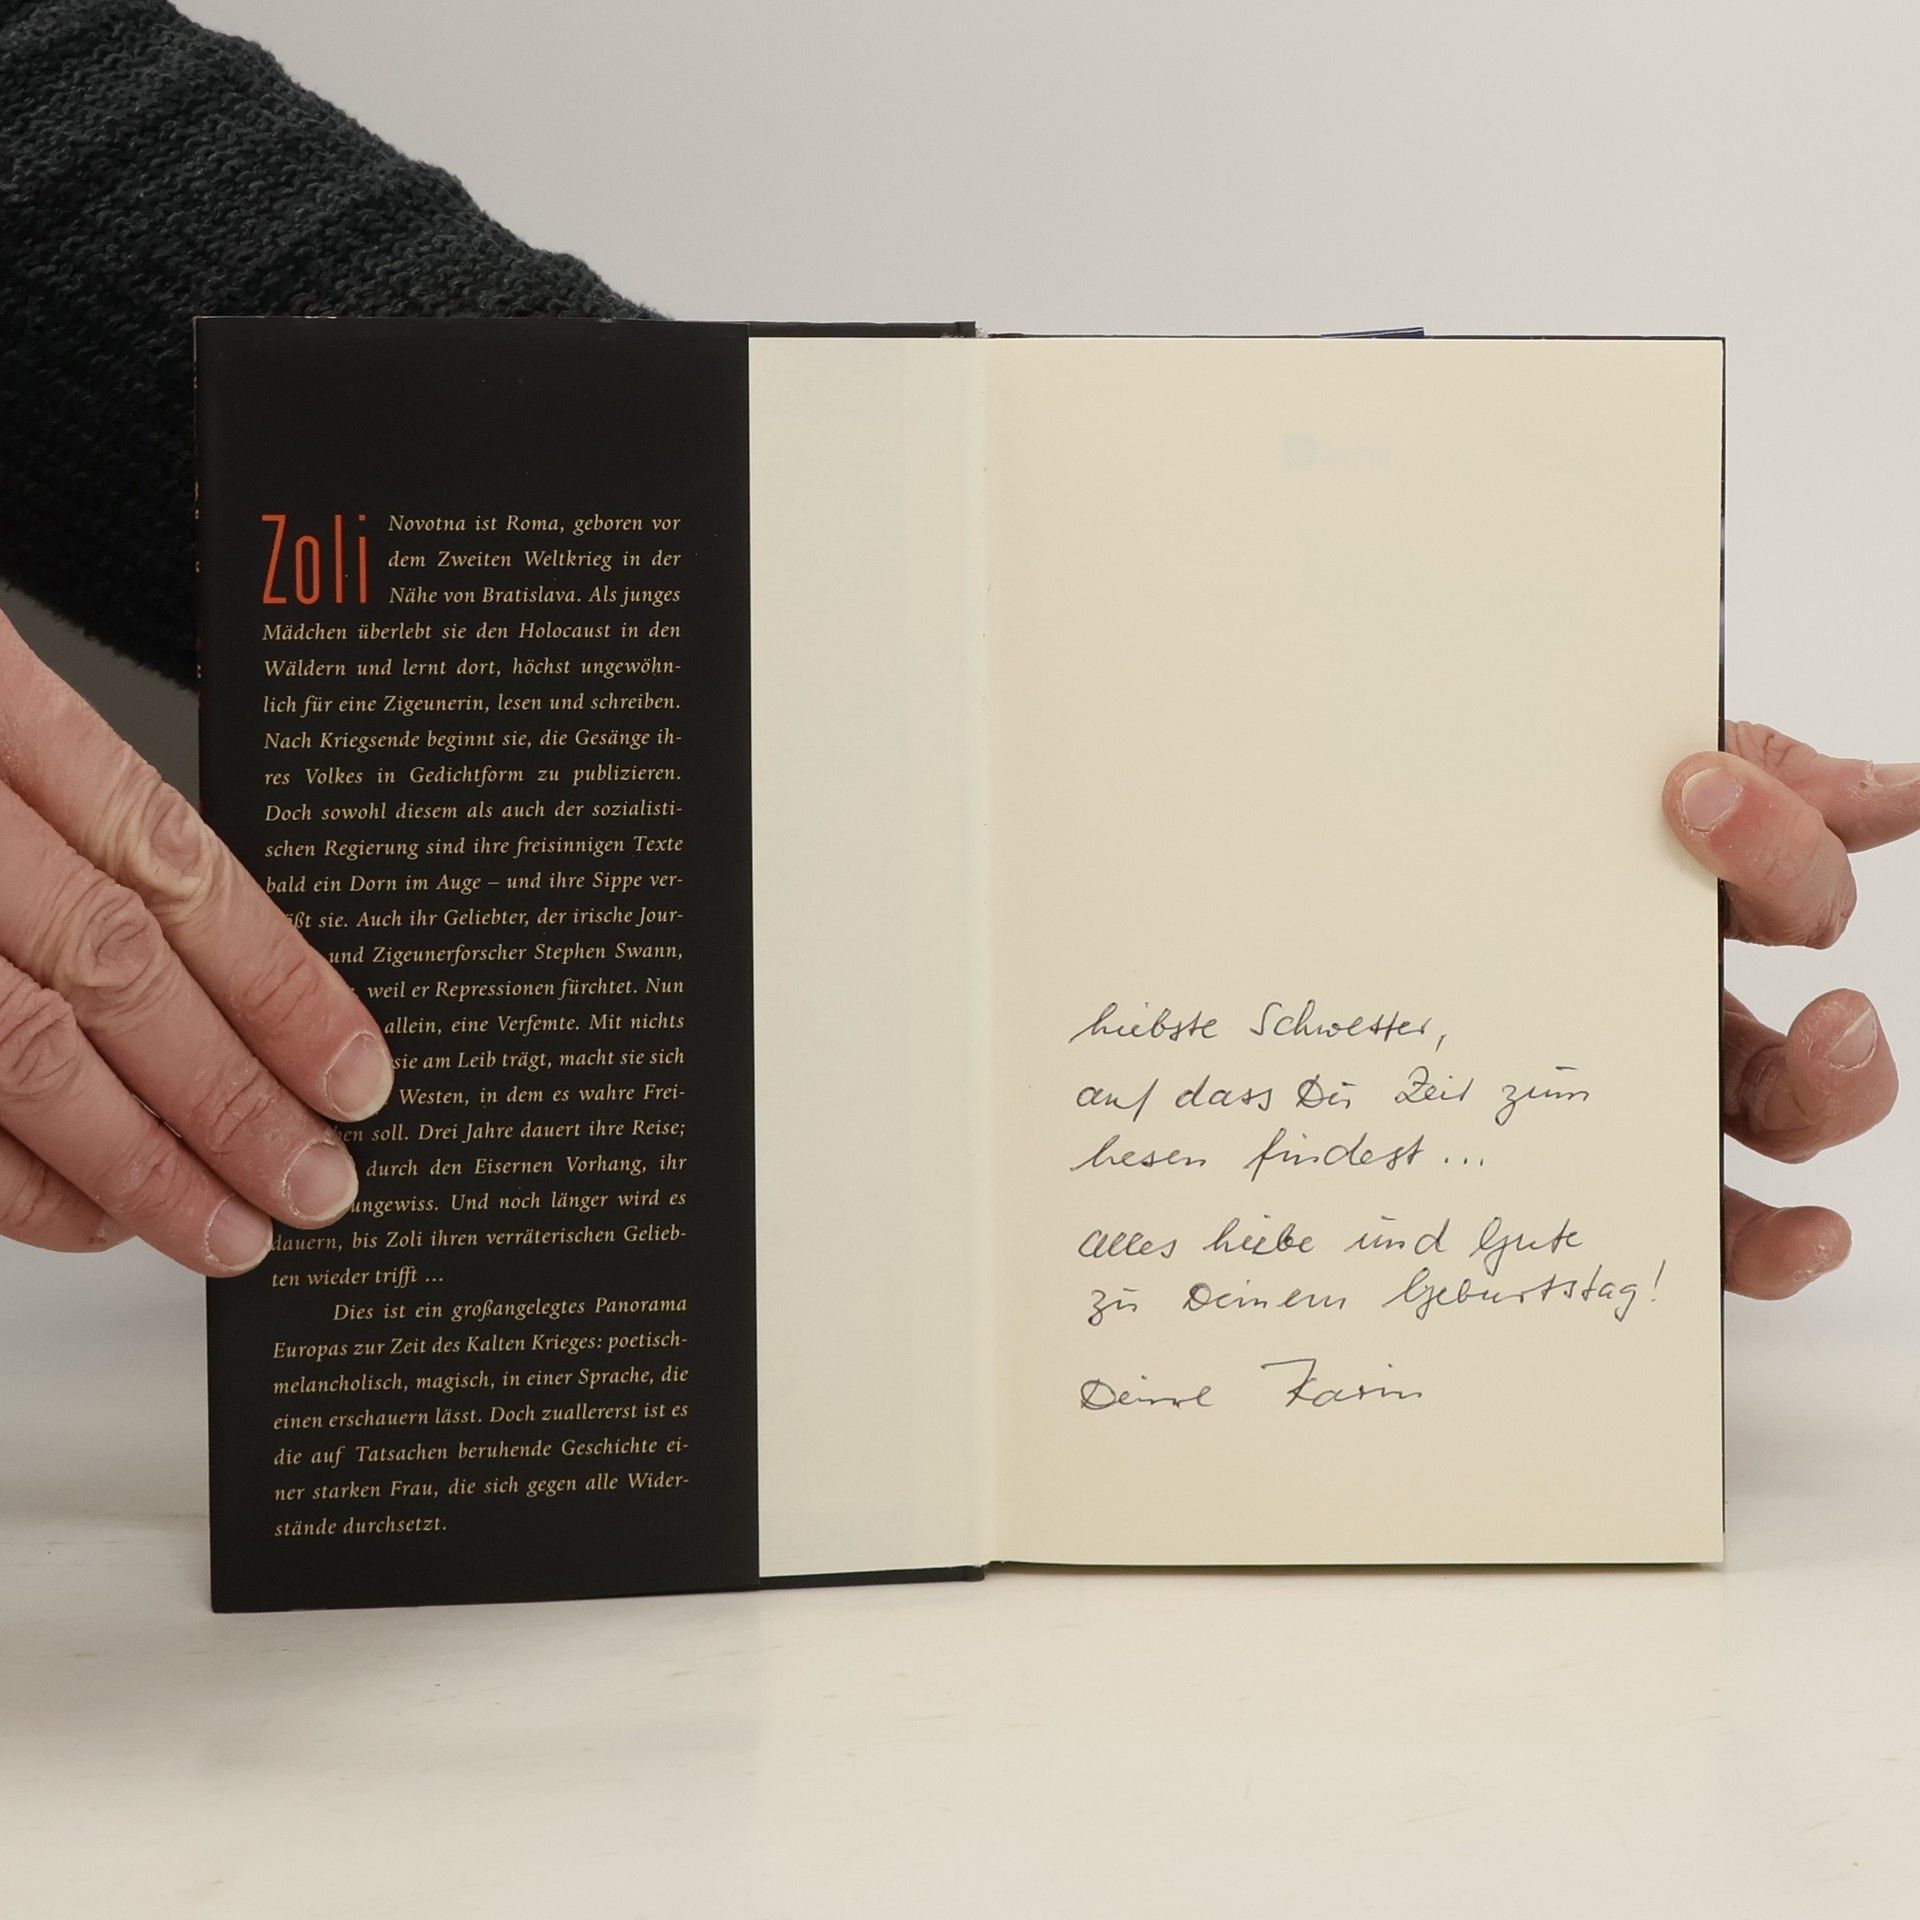 Zoli Novotna ist Roma, geboren vor
dem Zweiten Weltkrieg in der
Nähe von Bratislava. Als junges
Mädchen überlebt sie den Holocaust in den
Wäldern und lernt dort, höchst ungewöhn-
lich für eine Zigeunerin, lesen und schreiben.
Nach Kriegsende beginnt sie, die Gesänge ih-
res Volkes in Gedichtform zu publizieren.
Doch sowohl diesem als auch der sozialisti-
schen Regierung sind ihre freisinnigen Texte
bald ein Dorn im Auge – und ihre Sippe ver-
sie. Auch ihr Geliebter, der irische Jour-
und Zigeunerforscher Stephen Swann,
weil er Repressionen fürchtet. Nun
allein, eine Verfemte. Mit nichts
sie am Leib trägt, macht sie sich
Westen, in dem es wahre Frei-
soll. Drei Jahre dauert ihre Reise;
durch den Eisernen Vorhang, ihr
ungewiss. Und noch länger wird es
dauern, bis Zoli ihren verräterischen Gelieb-
ten wieder trifft ...
Dies ist ein großangelegtes Panorama
Europas zur Zeit des Kalten Krieges: poetisch-
melancholisch, magisch, in einer Sprache, die
einen erschauern lässt. Doch zuallererst ist es
die auf Tatsachen beruhende Geschichte ei-
ner starken Frau, die sich gegen alle Wider-
stände durchsetzt.
Liebste Schwester,
auf dass Du Zeit zum
Lesen findest ...
Alles Liebe und Gute
zu Deinem Geburtstag!
Deine Karin